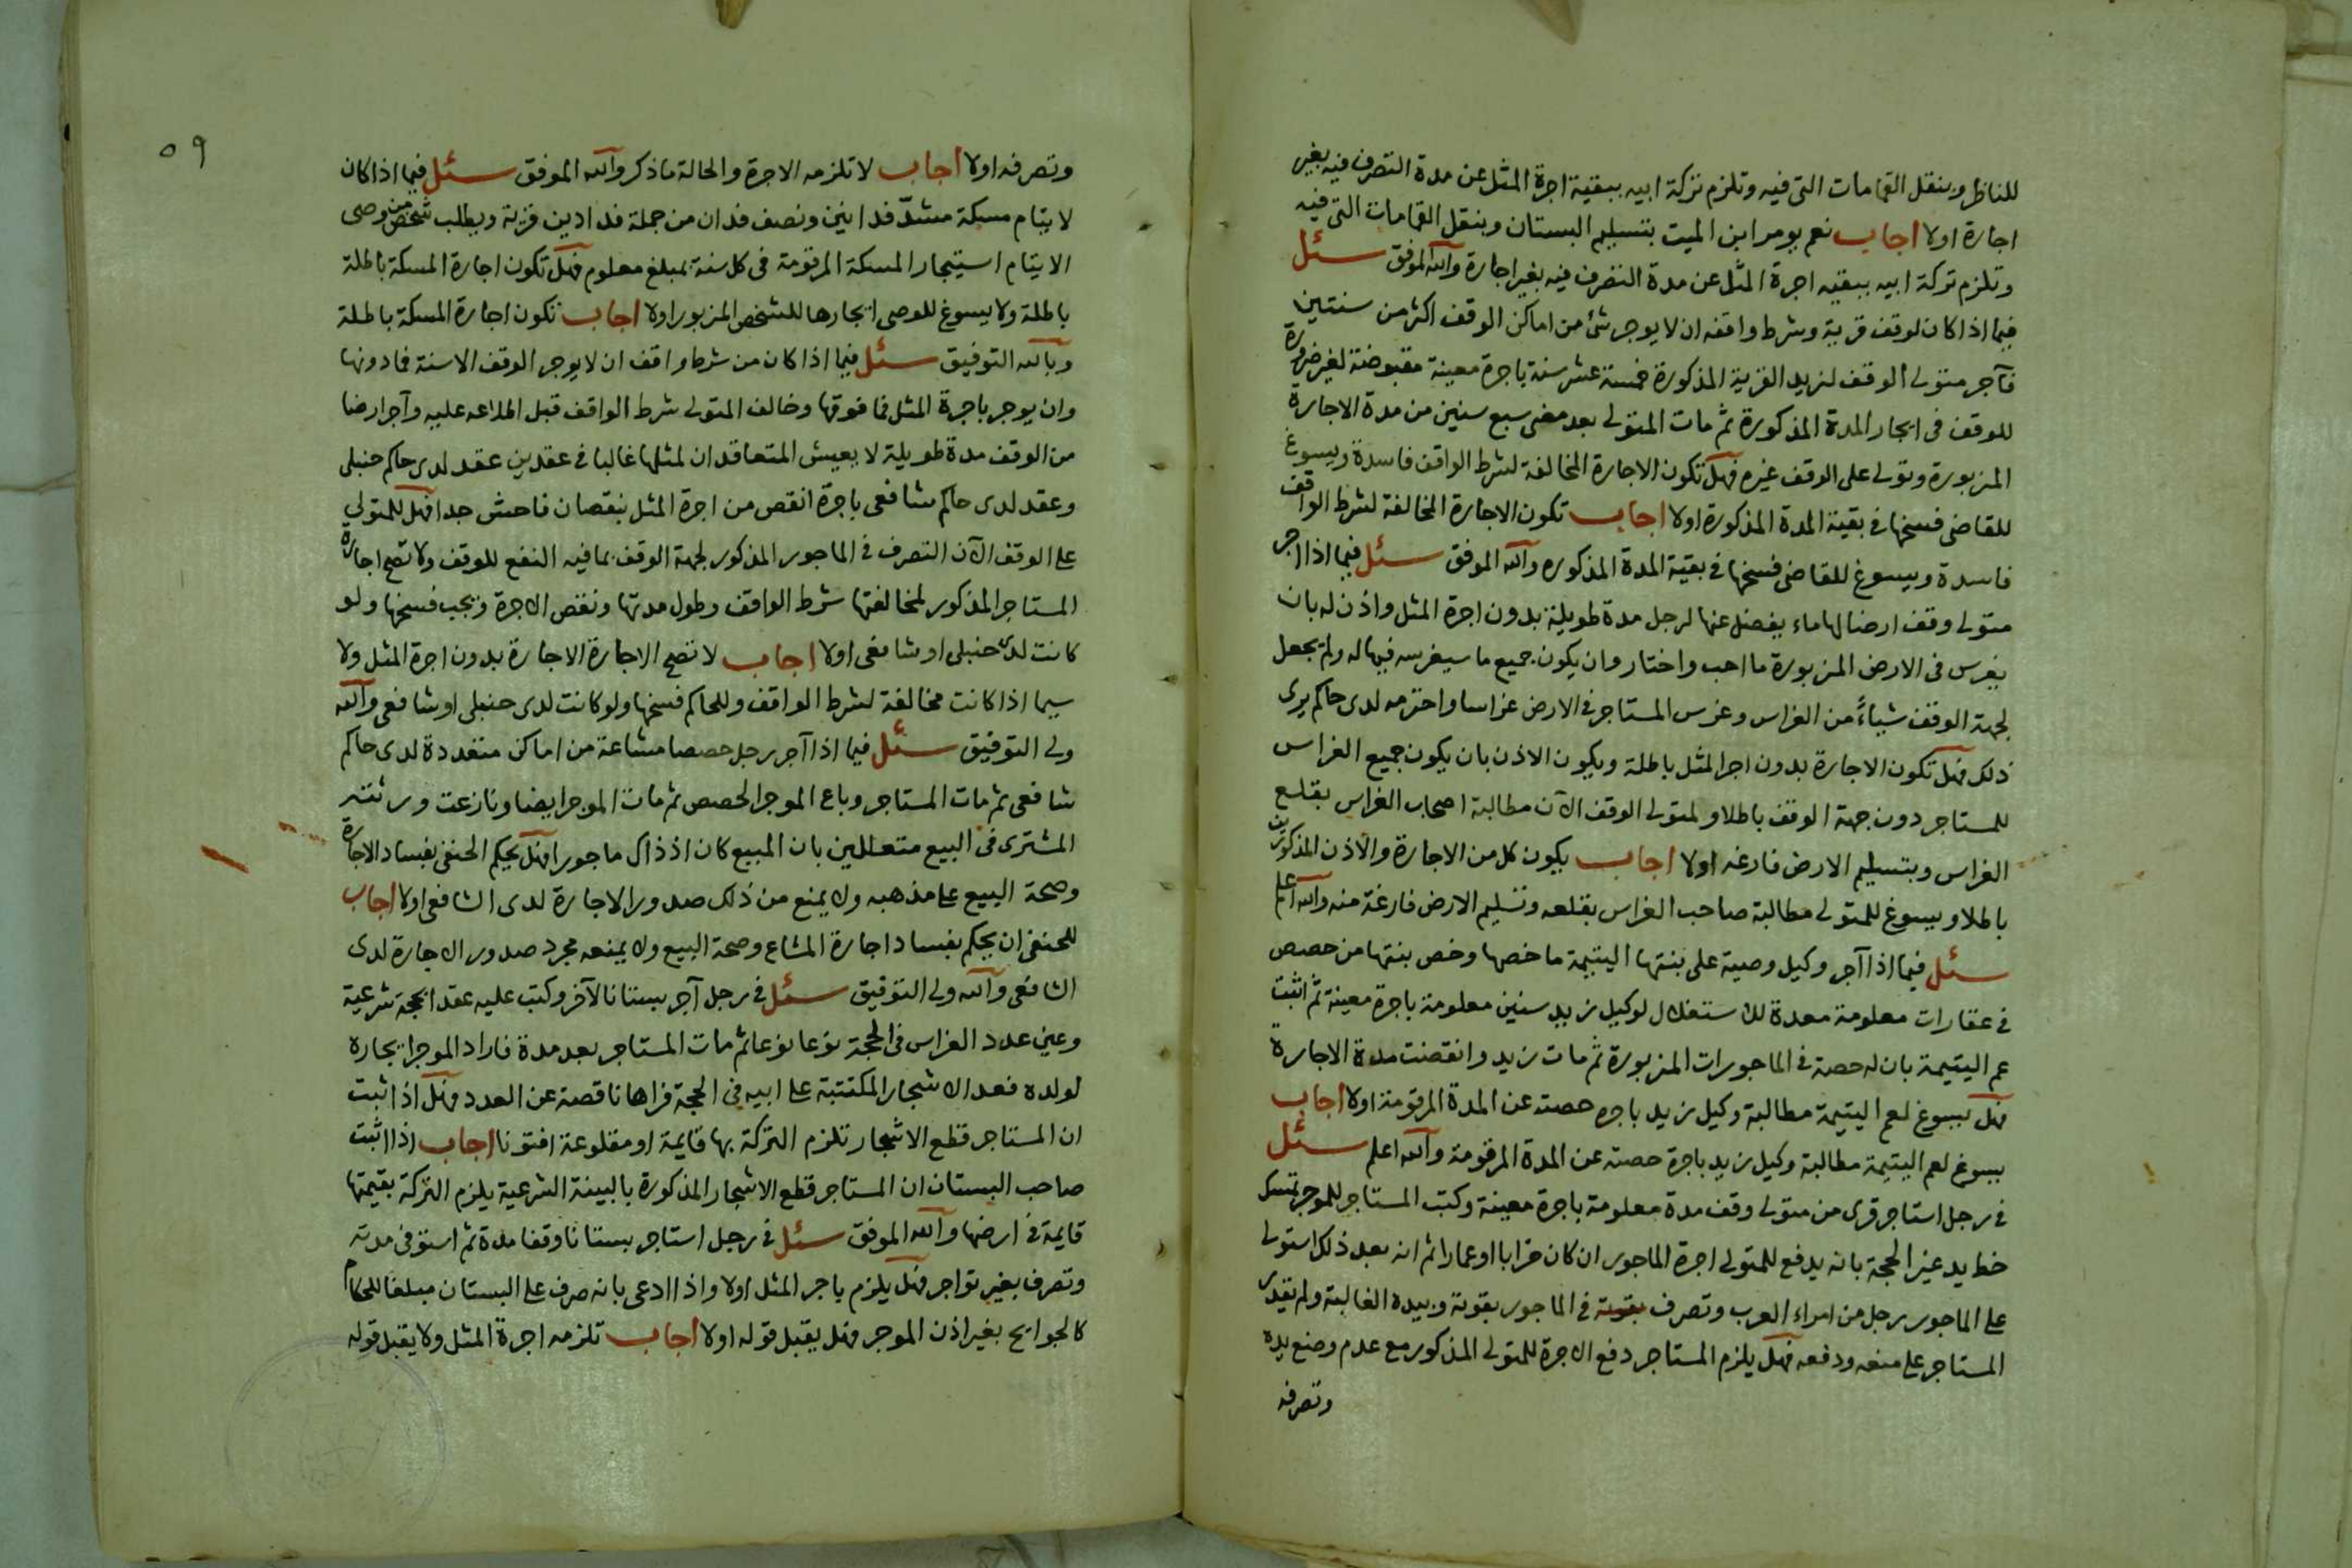 للناظر وبنقل القمامات التى فيه وتلزم تركة ابيه ببقية اجرة المثل عن مدة التصرف فيه بغير
اجارة اولا اجاب نعم يومر ابن الميت بتسليم البستان وبنقل القمامات التى فيه
وتلزم تركة ابيه ببقيه اجرة المثل عن مدة التصرف فيه بغير اجارة والله الموفق سئل
فيما اذا كان لوقف قرية وشرط واقفه ان لا يوجر شئ من اماكن الوقف اكثر من سنتين
فآجر متولى الوقف لزيد القرية المذكورة خمسة عشر سنة باجرة معينة مقبوضة لغير ضرورة
للوقف فى ايجار المدة المذكورة ثم مات المتولى بعد مضى سبع سنين من مدة الاجارة
المزبورة وتولى على الوقف غيره فهل تكون الاجارة المخالفة لشرط الواقف فاسدة ويسوغ
للقاضى فسخها فى بقية المدة المذكورة اولا اجاب تكون الاجارة المخالفة لشرط الواقف
فاسدة ويسوغ للقاضى فسخها فى بقية المدة المذكوره والله الموفق سئل فيما اذا اجر
متولى وقف ارضا لها ماء يفضل عنها لرجل مدة طويلة بدون اجرة المثل واذن له بان
يغرس فى الارض المزبورة ما احب واختار وان يكون جميع ما سيغرسه فيها له ولم يجعل
لجهة الوقف شياءً من الغراس وغرس المستاجر فى الارض غراسا واحترمه لدى حاكم يرى
ذلك فهل تكون الاجارة بدون اجر المثل باطلة ويكون الاذن بان يكون جميع الغراس
للمستاجر دون جهة الوقف باطلا ولمتولى الوقف الآن مطالبة اصحاب الغراس بقلع
الغراس وبتسليم الارض فارغه اولا اجاب يكون كل من الاجارة والاذن المذكورين
باطلا ويسوغ للمتولى مطالبة صاحب الغراس بقلعه وتسليم الارض فارغة منه والله اعلم
سئل فيما اذا آجر وكيل وصية على بنتها اليتيمة ما خصها وخص بنتها من حصص
فى عقارات معلومة معدة للاستغلال لوكيل زيد سنين معلومة باجرة معينة ثم اثبت
عم اليتيمة بان له حصة فى الماجورات المزبورة ثم مات زيد وانقضت مدة الاجارة
فهل يسوغ لعم اليتيمة مطالبة وكيل زيد باجرة حصته عن المدة المرقومة اولا اجاب
يسوغ لعم اليتيمة مطالبة وكيل زيد باجرة حصته عن المدة المرقومة والله اعلم سئل
فى رجل استاجر قرى من متولى وقف مدة معلومة باجرة معينة وكتب المستاجر للموجر تمسك
خط يد غير الحجة بانه يدفع للمتولى اجرة الماجور ان كان خرابا او عمارا ثم انه بعد ذلك استولى
على الماجور رجل من امراء العرب وتصرف فى الماجور بقوته وبيده الغالبة ولم يقدر
المستاجر على منعه ودفعه فهل يلزم المستاجر دفع الاجرة للمتولى المذكور مع عدم وضع يده
وتصرفه
٥٩
وتصرفه اولا اجاب لا تلزمه الاجرة والحالة ماذكر والله الموفق سئل فيما اذا كان
لايتام مسكة مشدّ فدانين ونصف فدان من جملة فدادين قرية ويطلب شخص من وصى
الايتام استيجار المسكة المرقومة فى كل سنة بمبلغ معلوم فهل تكون اجارة المسكة باطلة
باطلة ولا يسوغ للوصى ايجارها للشخص المزبور اولا اجاب تكون اجارة المسكة باطلة
وبالله التوفيق سئل فيما اذا كان من شرط واقف ان لا يوجر الوقف الا سنة فما دونها
وان يوجر باجرة المثل فما فوقها وخالف المتولى شرط الواقف قبل اطلاعه عليه وآجر ارضا
من الوقف مدة طويلة لا يعيش المتعاقدان لمثلها غالبا فى عقدين عقد لدى حاكم حنبلى
وعقد لدى حاكم شافعى باجرة انقص من اجرة المثل بنقصان فاحش جدا فهل للمتولى
على الوقف الآن التصرف فى الماجور المذكور لجهة الوقف بما فيه النفع للوقف ولا تصح اجارة
المستاجر المذكور لمخالفتها شرط الواقف وطول مدتها ونقص الاجرة ويجب فسخها ولو
كانت لدى حنبلى او شافعى اولا اجاب لا تصح الاجارة الاجارة بدون اجرة المثل ولا
سيما اذا كانت مخالفة لشرط الواقف وللحاكم فسخها ولو كانت لدى حنبلى او شافعى والله
ولى التوفيق سئل فيما اذا آجر رجل حصصا مشاعة من اماكن متعددة لدى حاكم
شافعى ثم مات المستاجر وباع الموجر الحصص ثم مات الموجر ايضا ونازعت ورثته
المشترى فى البيع متعللين بان المبيع كان اذ ذاك ماجورا فهل يحكم الحنفى بفساد الاجارة
وصحة البيع على مذهبه ولا يمنع من ذلك صدور الاجارة لدى الشافعى اولا اجاب
للحنفى ان يحكم بفساد اجارة المشاع وصحة البيع ولا يمنعه مجرد صدور الاجارة لدى
الشافعى والله ولى التوفيق سئل فى رجل آجر بستانا لآخر وكتب عليه عقد ايحجة شرعية
وعين عدد الغراس فى الحجة نوعا نوعا ثم مات المستاجر بعد مدة فاراد الموجر ايجاره
لولده فعد الاشجار المكتتبة على ابيه فى الحجة فراها ناقصة عن العدد فهل اذا ثبت
ان المستاجر قطع الاشجار تلزم التركة بها قايمة او مقلوعة افتونا اجاب اذا اثبت
صاحب البستان ان المستاجر قطع الاشجار المذكورة بالبينة الشرعية يلزم التركة بقيمتها
قايمة فى ارضها والله الموفق سئل فى رجل استاجر بستانا وقفا مدة ثم استوفى مدته
وتصرف بغير تواجر فهل يلزم باجر المثل اولا واذا ادعى بانه صرف على البستان مبلغا للحكام
كالجوايح بغير اذن الموجر فهل يقبل قوله اولا اجاب تلزمه اجرة المثل ولا يقبل قوله